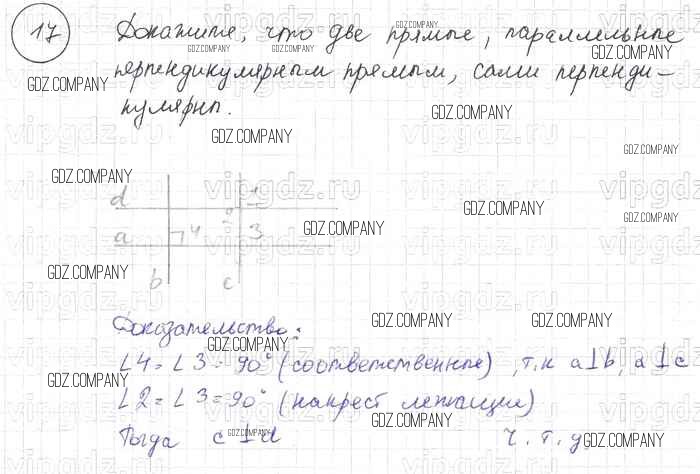 17
Докажите, что две прямые, параллельные
перпендикулярным прямым, сами перпенди-
кулярны.
d 1
2
a 4 3
b c
Доказательство:
∠4 = ∠3 = 90° (соответственные), т.к a⊥b, a⊥c
∠2 = ∠3 = 90° (накрест лежащие)
Тогда c⊥d ч.т.д.
GDZ.COMPANY
vipgdz.ru